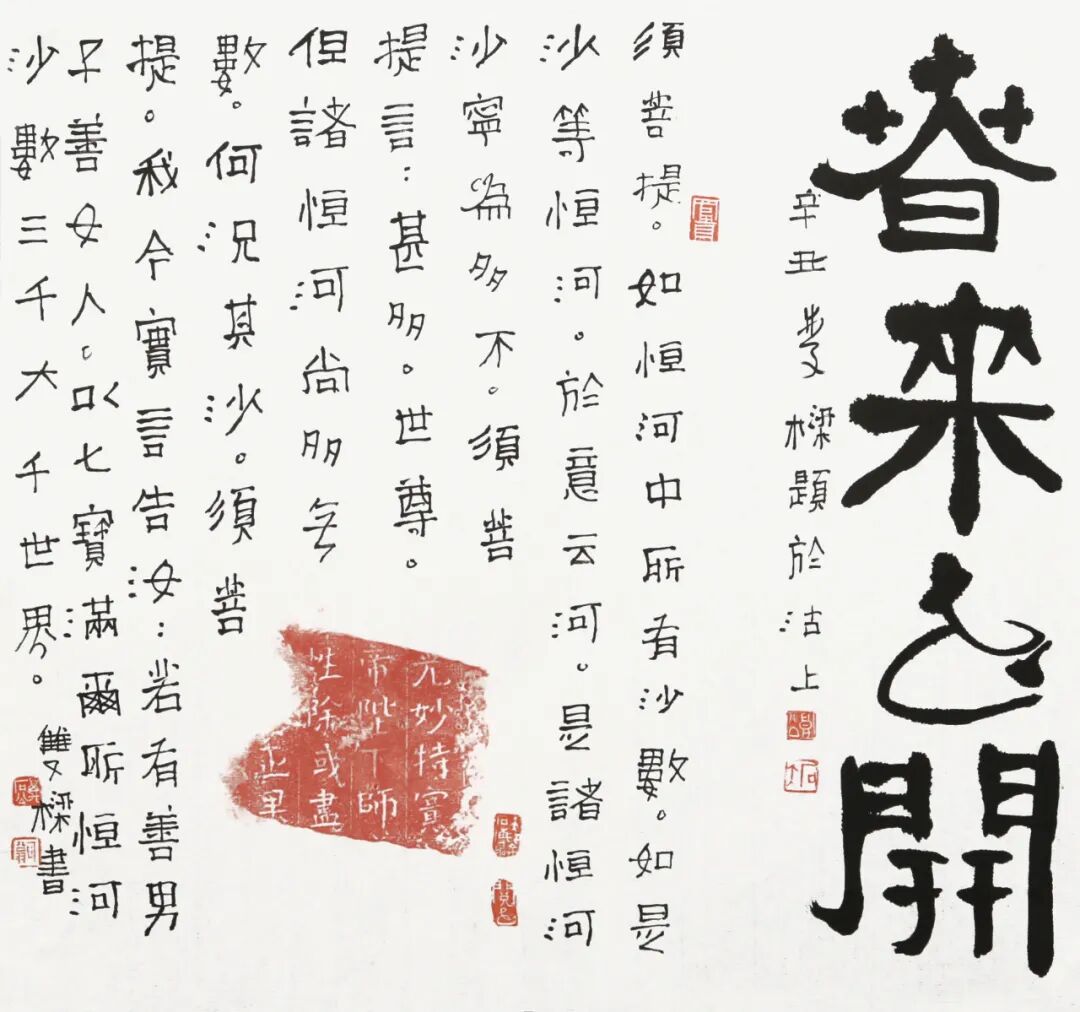 春來開
辛丑雙樑題於沽上
須菩提。如恒河中所有沙數。如是
沙等恒河。於意云河。是諸恒河
沙寧為多不。須菩
提言：甚多。世尊。
但諸恒河尚多無
數。何況其沙。須菩
提。我今實言告汝：若有善男
子善女人。以七寶滿爾所恒河
沙數三千大千世界。
雙樑書
妙特
帝陛下師
性除或盡